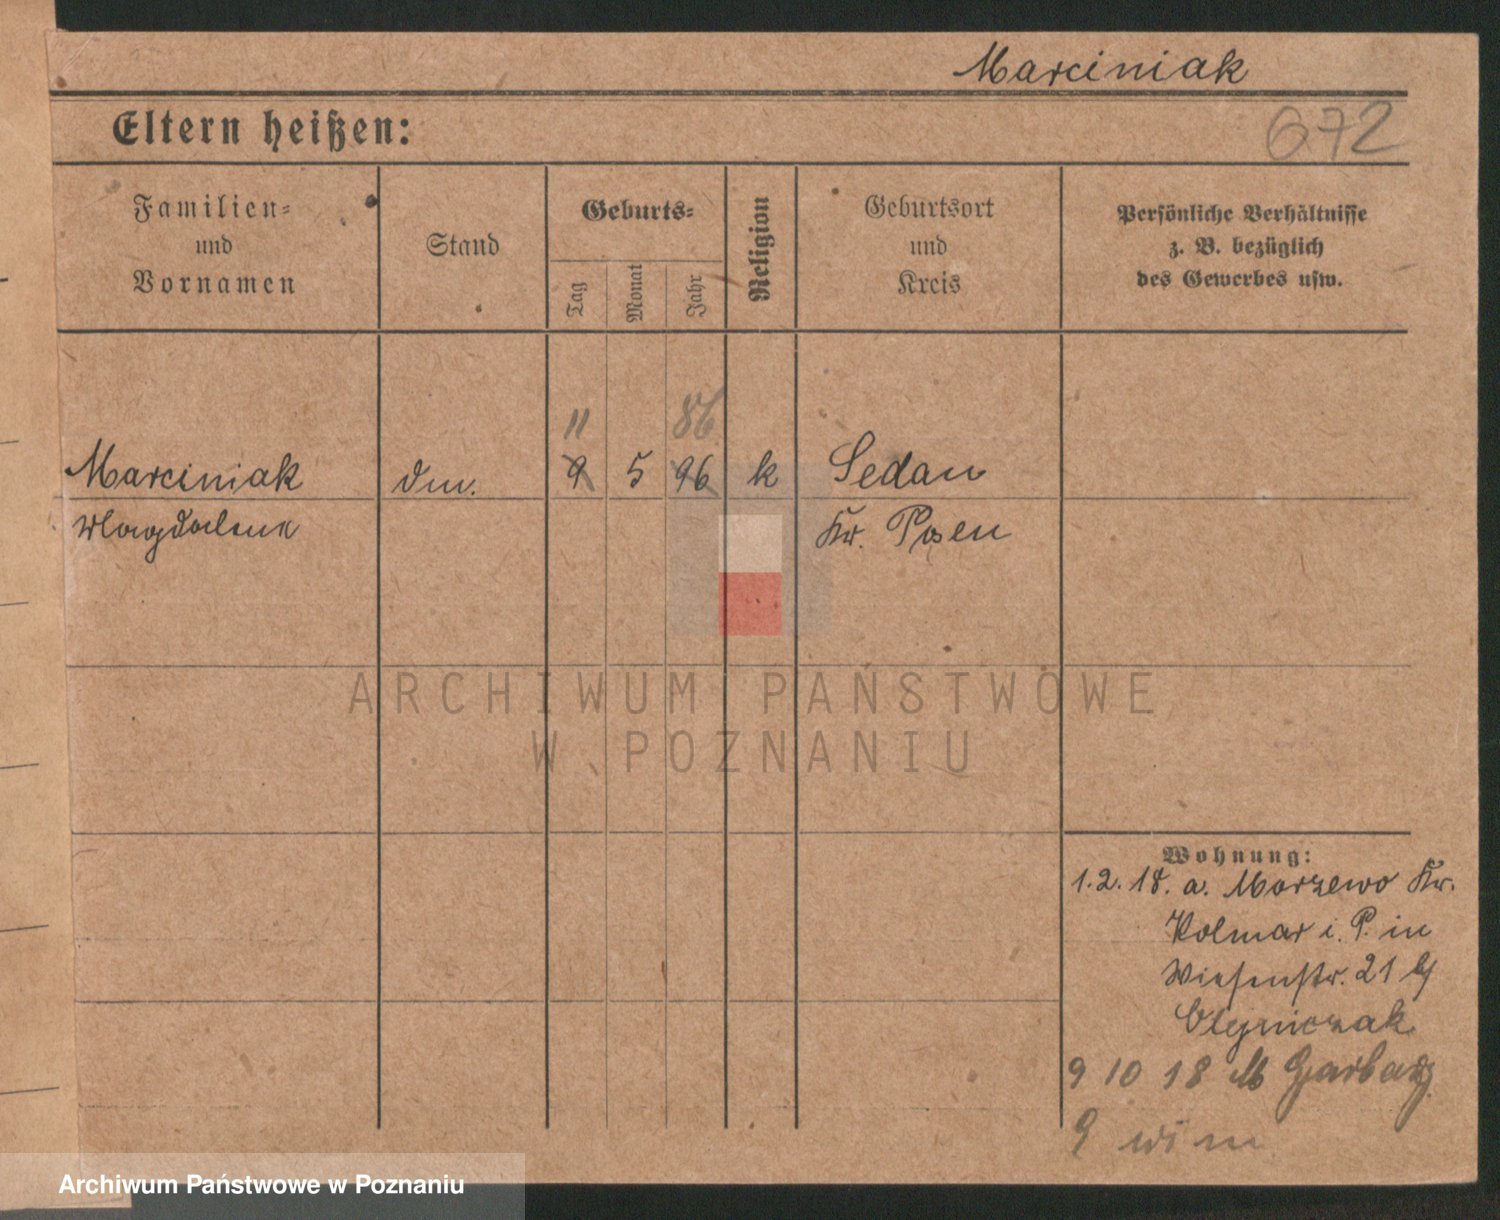 Marciniak
672
Eltern heißen:
Familien-
und
Vornamen
Stand
Geburts-
Tag
Monat
Jahr
Religion
Geburtsort
und
Kreis
Persönliche Verhältnisse
z. B. bezüglich
des Gewerbes usw.
11 86
Marciniak dm. 9 5 96 k Sedan
Magdalena Kr. Posen
ARCHIWUM PAŃSTWOWE
W POZNANIU
Wohnung:
1.2.18. a. Morzewo Kr.
Kolmar i. P. in
Wiesenstr. 21 b/
9 10 18 Garbary
9
Archiwum Państwowe w Poznaniu